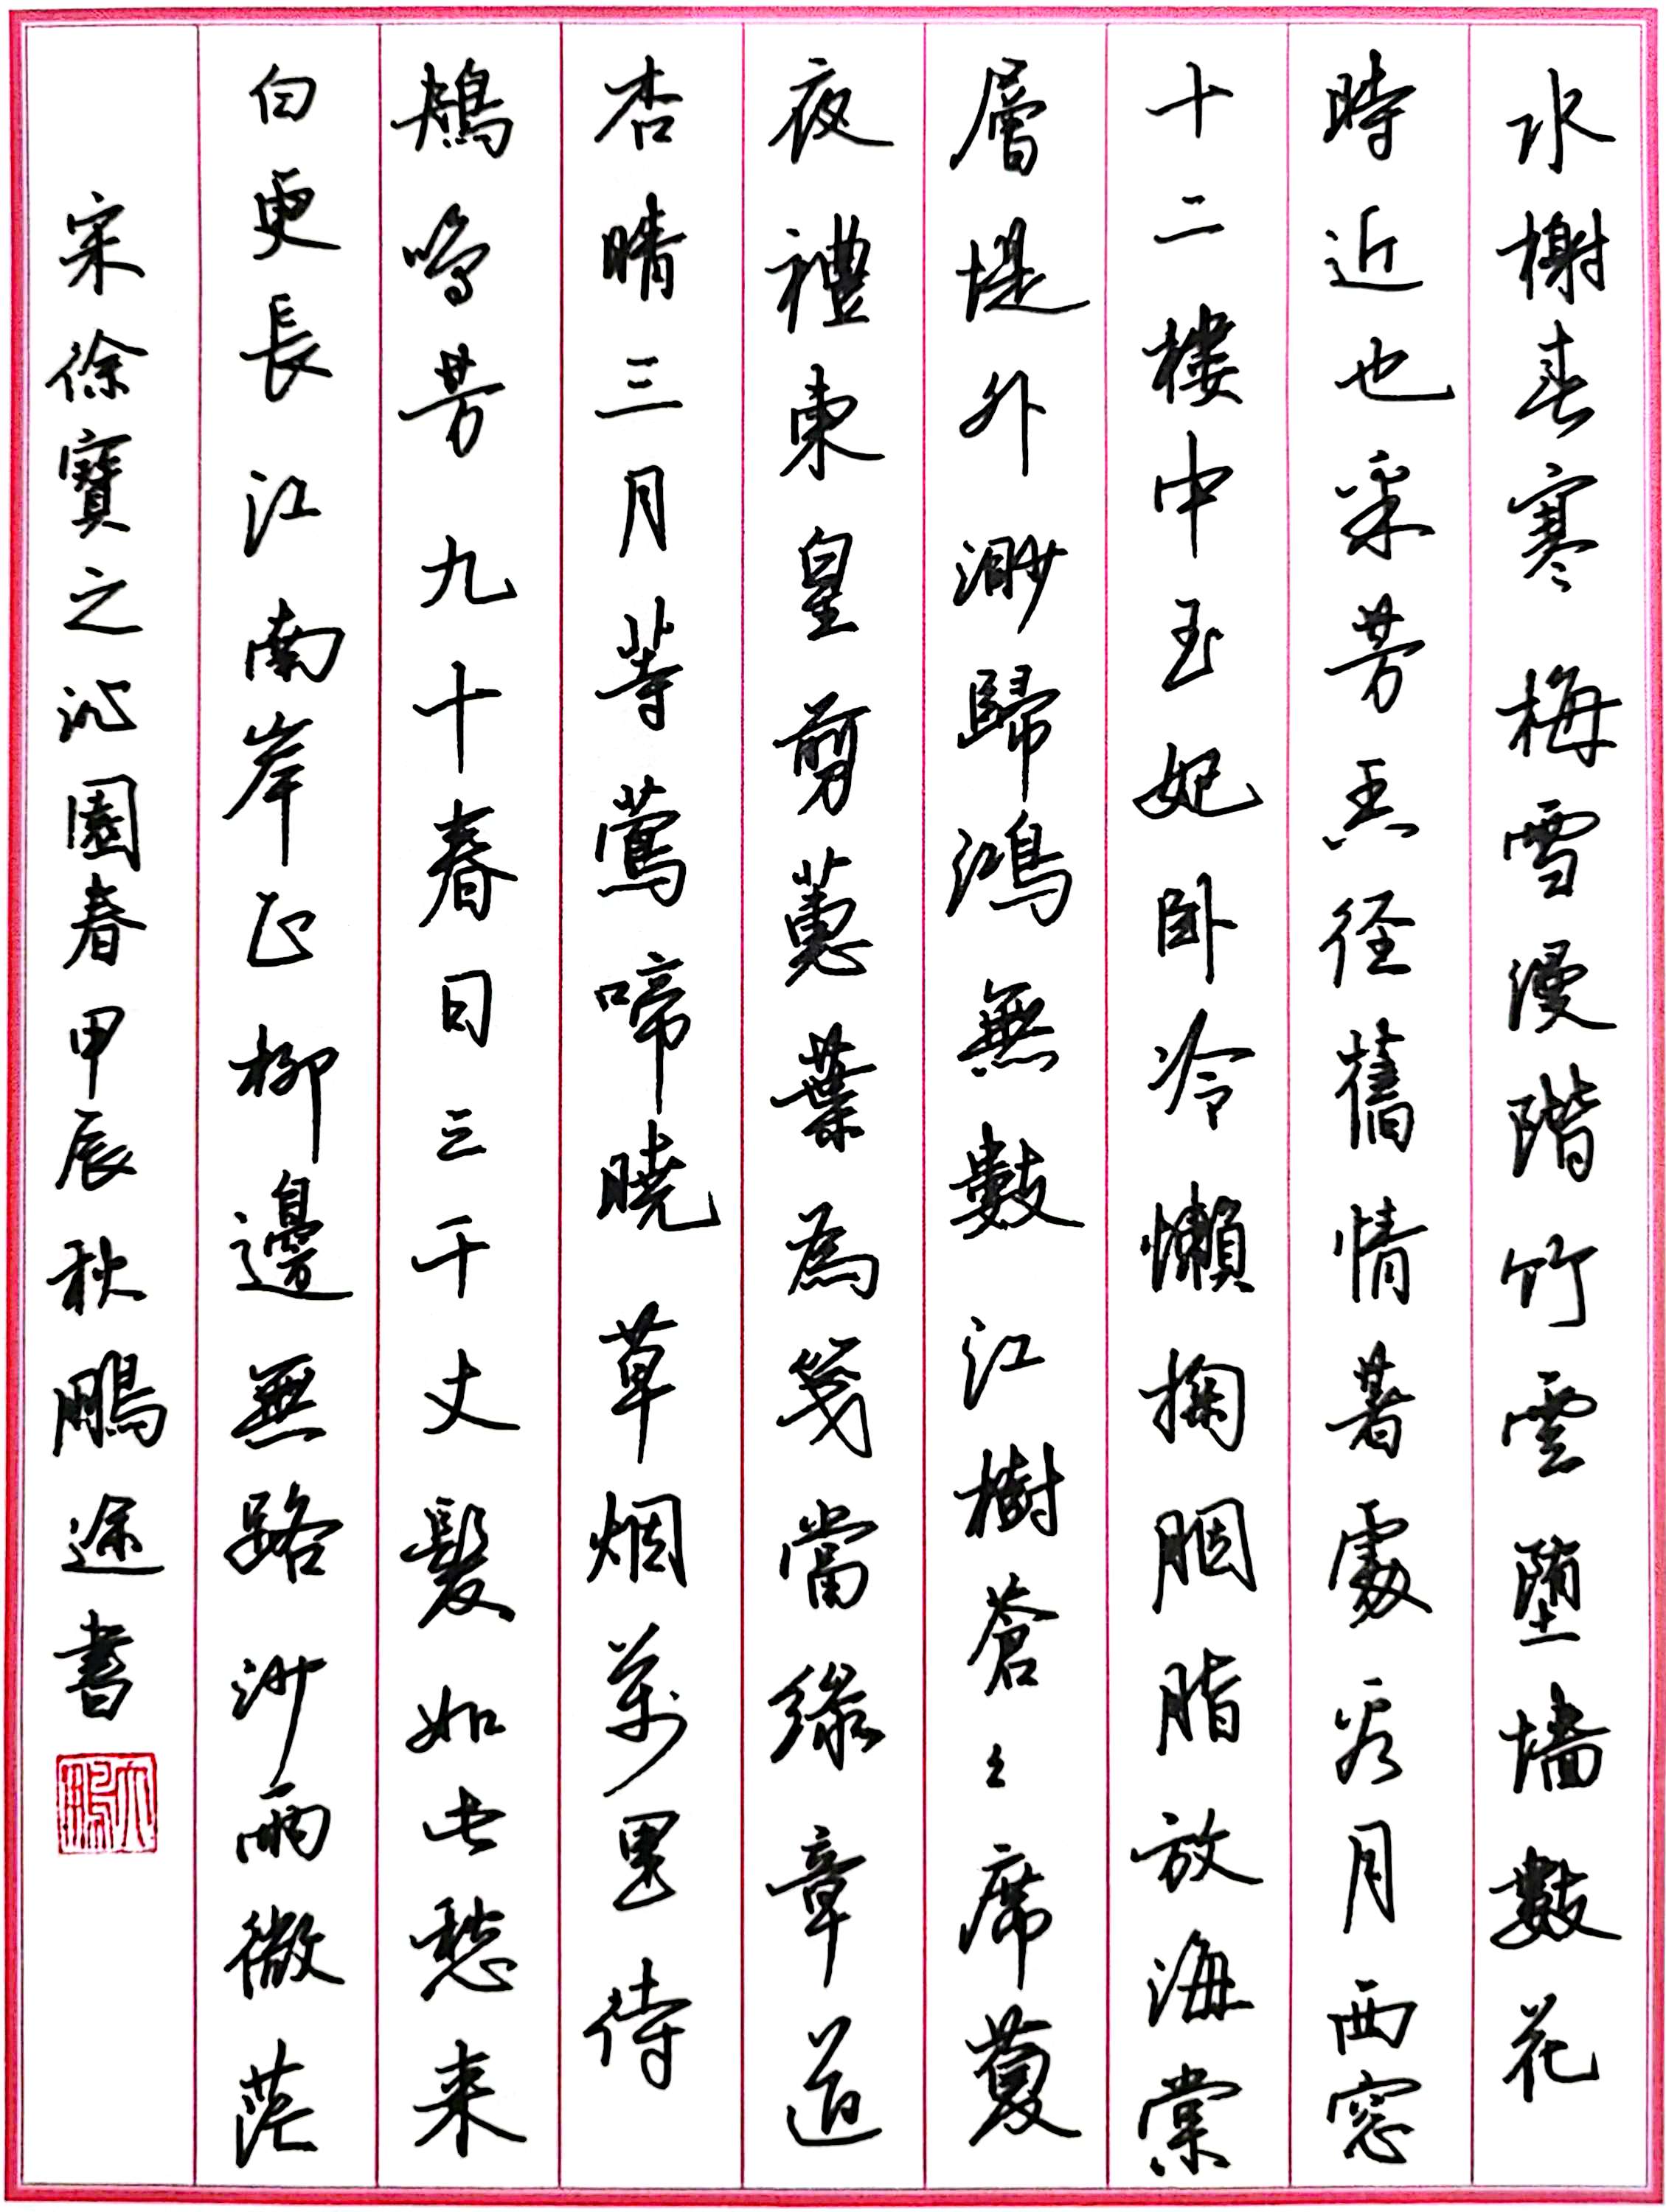 水榭春寒梅雪漫階竹雲墮墻數花
時近也采芳香徑舊情著處看月西窓
十二樓中玉妃卧冷懶掬胭脂放海棠
層堤外渺歸鴻無數江樹蒼〻席蔓
夜禮東皇剪蕙葉為箋當綠章道
杏晴三月等鶯啼曉草烟萬里待
鴂鳴芳九十春日三千丈髮如此愁来
白更長江南岸正柳邊無路沙雨微茫
宋徐寶之沁園春甲辰秋鵬途書